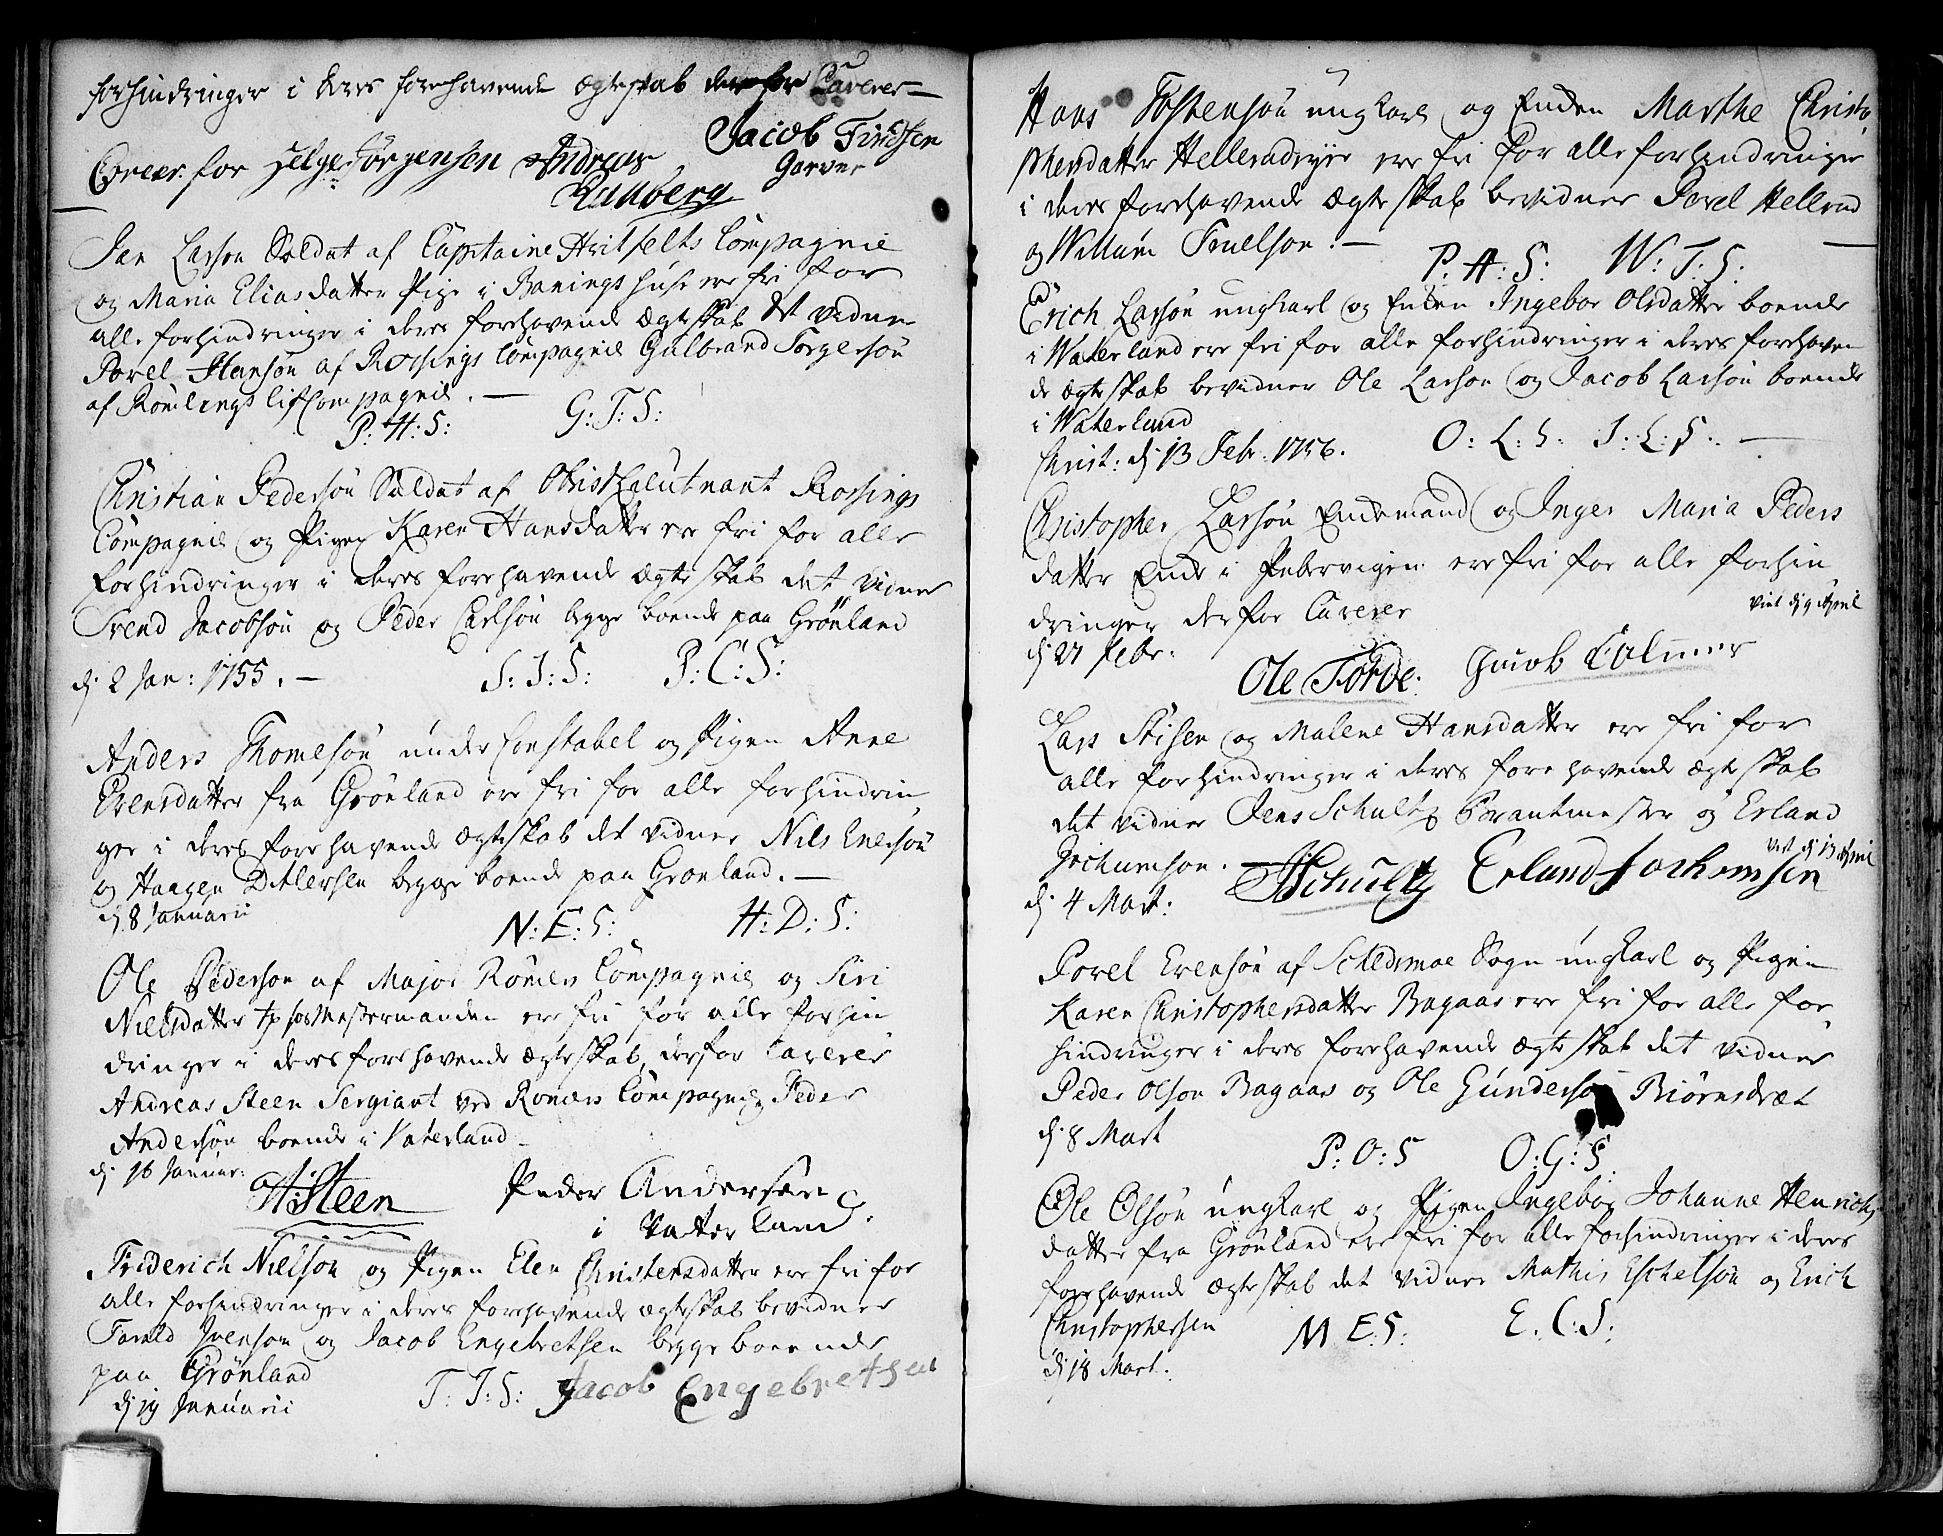 forhindringer i deres forehavende ægteskab derfor Caverer
Jacob Findsen
Caverer for Helge Jørgensen Andreas Garver
Ramberg
Jan Larsen Soldat af Capitaine Hvitfelts Compagnie
og Maria Eliasdatter Pige i huse ere fri for
alle forhindringer i deres forehavende ægteskab det vidner
Povel Hansøn af Rossings Compagnie Gulbrand Torgersøn
af Römlings lifCompagnie. —
P: H: S: G: T: S:
Christian Pedersøn Soldat af ObristLieutnant Rossings
Compagnie og Pigen Karen Hansdatter ere fri for alle
forhindringer i deres forehavende ægteskab det vidner
Svend Jacobsøn og Peder Carlsøn begge boende paa Grønland
d: 2 Jan: 1755. — S: I: S: P: C: S:
Anders Thomesøn under Constabel og Pigen Anne
Svensdatter fra Grønland ere fri for alle forhindrin
ger i deres forehavende ægteskab det vidner Nils Enersøn
og Haagen Ditlevsen begge boende paa Grønland. —
d: 8 Januarii N: E: S: H: D: S:
Ole Pederson af Major Römers Compagnie og Siri
Nielsdatter hos Mestermanden ere fri for alle forhin
dringer i deres forehavende ægteskab, derfor Caverer
Andreas Steen Sergiant ved Romers Compagnie Peder
Andersøn boende i Vaterland
d: 16 Januar:
A: Steen Peder Andersøn
i Vaterland.
Friderich Nielson og Pigen Elen Christensdatter ere fri for
alle forhindringer i deres forehavende ægteskab bevidner
Tarald Ivenson og Jacob Engebretsen begge boende
paa Grønland
d: 19 Januarii T: I: S: Jacob Engebretsen
Hans Tostensøn ungkarl og Enken Marthe Christo
phersdatter Helleradeyie ere fri for alle forhindringer
i deres forehavende ægteskab bevidner Povel Hellerud
og Willum Truelson. — P: H: S: W: T: S:
Erich Larsøn ungkarl og Enken Ingebor Olsdatter boende
i Waterland ere fri for alle forhindringer i deres forehaven
de ægteskab bevidner Ole Larson og Jacob Larsøn boende
i Waterland
Christ: d: 13 Febr. 1756. O: L: S: I: L: S: —
Christopher Larsøn Enkemand og Inger Maria Peders
datter Enke i Pebervigen ere fri for alle forhin
dringer derfor Caverer Viet d: 9 April
d: 27 Febr: Ole Torde: Jacob Colmer
Lars Stisen og Malene Hansdatter ere fri for
alle forhindringer i deres forehavende ægteskab
det vidner Jens Schultz Brantmester og Erland
Jochumson. viet d: 13 April
d: 4 Mart: JSchultz Erland Jochumsen
Povel Evensøn af Schedsmoe Sogn ungkarl og Pigen
Karen Christophersdatter Bagaas ere fri for alle for
hindringer i deres forehavende ægteskab det vidner
Peder Olson Bagaas og Ole Gunderso Biørnsdræt
d: 8 Mart P: O: S O: G: S
Ole Olsøn ungkarl og Pigen Ingebor Johanne Henrichs
datter fra Grønland ere fri for alle forhindringer i deres
forehavende ægteskab det vidner Mathis Eschelsøn og Erich
Christophersen M E: S: E: C: S:
d: 18 Mart: